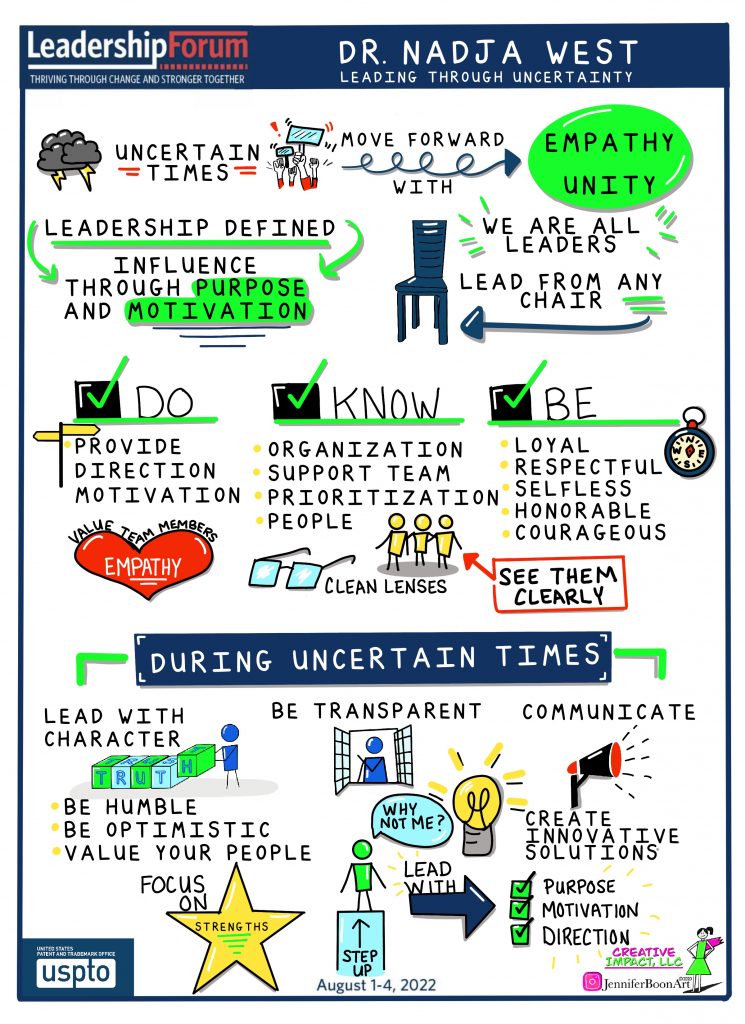 LeadershipForum
THRIVING THROUGH CHANGE AND STRONGER TOGETHER
DR. NADJA WEST
LEADING THROUGH UNCERTAINTY
UNCERTAIN
TIMES
MOVE FORWARD
WITH
EMPATHY
UNITY
LEADERSHIP DEFINED
INFLUENCE
THROUGH PURPOSE
AND MOTIVATION
WE ARE ALL
LEADERS
LEAD FROM ANY
CHAIR
DO
PROVIDE
DIRECTION
MOTIVATION
VALUE TEAM MEMBERS
EMPATHY
KNOW
ORGANIZATION
SUPPORT TEAM
PRIORITIZATION
PEOPLE
CLEAN LENSES
SEE THEM
CLEARLY
BE
LOYAL
RESPECTFUL
SELFLESS
HONORABLE
COURAGEOUS
N
E
S
W
DURING UNCERTAIN TIMES
LEAD WITH
CHARACTER
TRUTH
BE HUMBLE
BE OPTIMISTIC
VALUE YOUR PEOPLE
FOCUS
ON
STRENGTHS
BE TRANSPARENT
WHY
NOT ME?
STEP
UP
LEAD
WITH
COMMUNICATE
CREATE
INNOVATIVE
SOLUTIONS
PURPOSE
MOTIVATION
DIRECTION
UNITED STATES
PATENT AND TRADEMARK OFFICE
uspto
August 1-4, 2022
CREATIVE
IMPACT, LLC
JenniferBoonArt